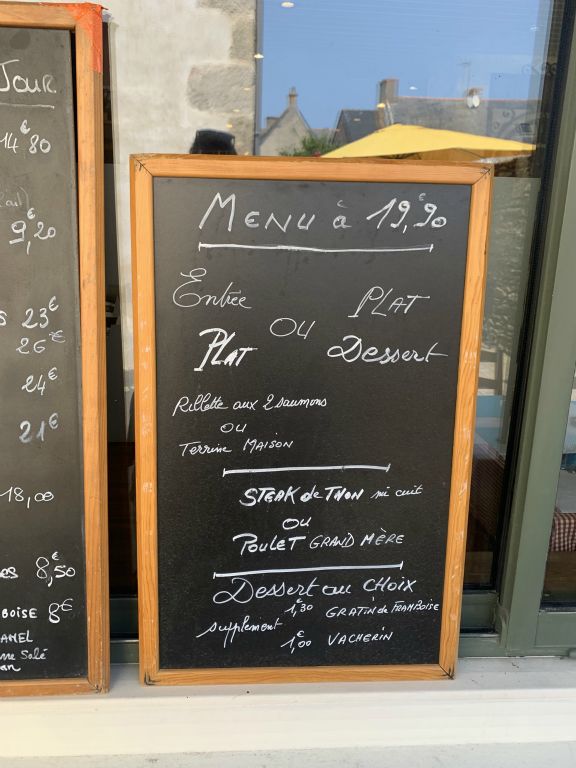 Jour
14€80
9,€20
23€
26€
24€
21€
18,00
8,€50
BOISE 8€
ANEL
Salé
MENU à 19,€90
Entrée PLAT
OU
PLAT Dessert
Rillette aux 2 saumons
OU
Terrine MAISON
STEAK de THON mi cuit
OU
POULET GRAND MÈRE
Dessert au CHOIX
supplément 1,€30 GRATIN de FRAMBOISE
1,€00 VACHERIN